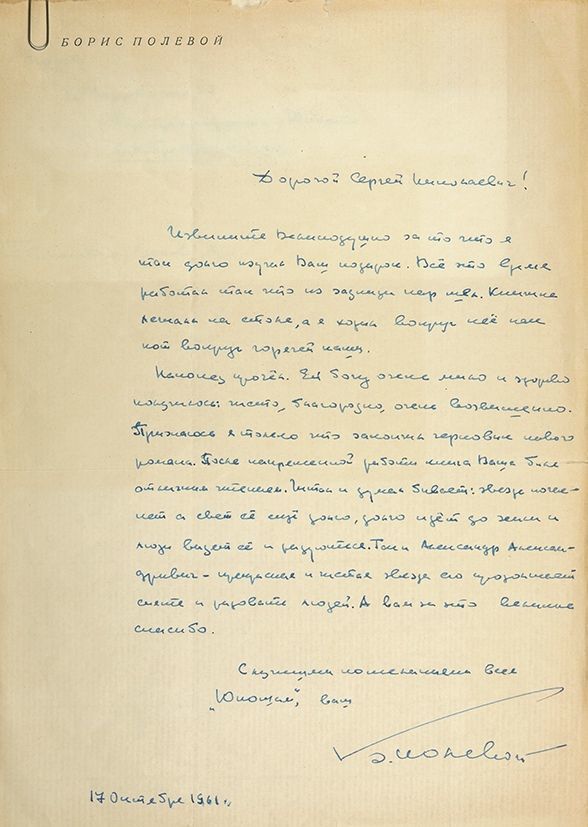 БОРИС ПОЛЕВОЙ
Дорогой Сергей Николаевич!
Извините великодушно за то что я
так долго изучал Ваш подарок. Всё это время
работал так что из задницы пар шёл. Книжка
лежала на столе, а я ходил вокруг неё как
кот вокруг горячей каши.
Наконец прочёл. Ей богу очень мило и здорово
получилось: чисто, благородно, очень возвышенно.
Признаюсь я только что закончил черновик нового
романа. После напряженной работы книга Ваша была
отличным чтением. Читал и думал бывает: звезда погас-
нет а свет её ещё долго, долго идёт до земли и
люди видят её и радуются. Так и Александр Алексан-
дрович - прекрасная и чистая звезда его продолжает
светить и радовать людей. А вам за это великое
спасибо.
С наилучшими пожеланиями всей
"Юности", ваш
Б. Полевой
17 Октября 1961 г.